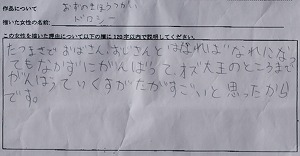 作品について
おずのまほうつかい
描いた女性の名前:
ドロシー
この女性を描いた理由について以下の欄に120字以内で説明してください。
たつまきでおばさん、おじさんとはなればなれになっ
てもなかずにがんばって、オズ大王のところまで
がんばっていくすがたがすごいと思ったから
です。